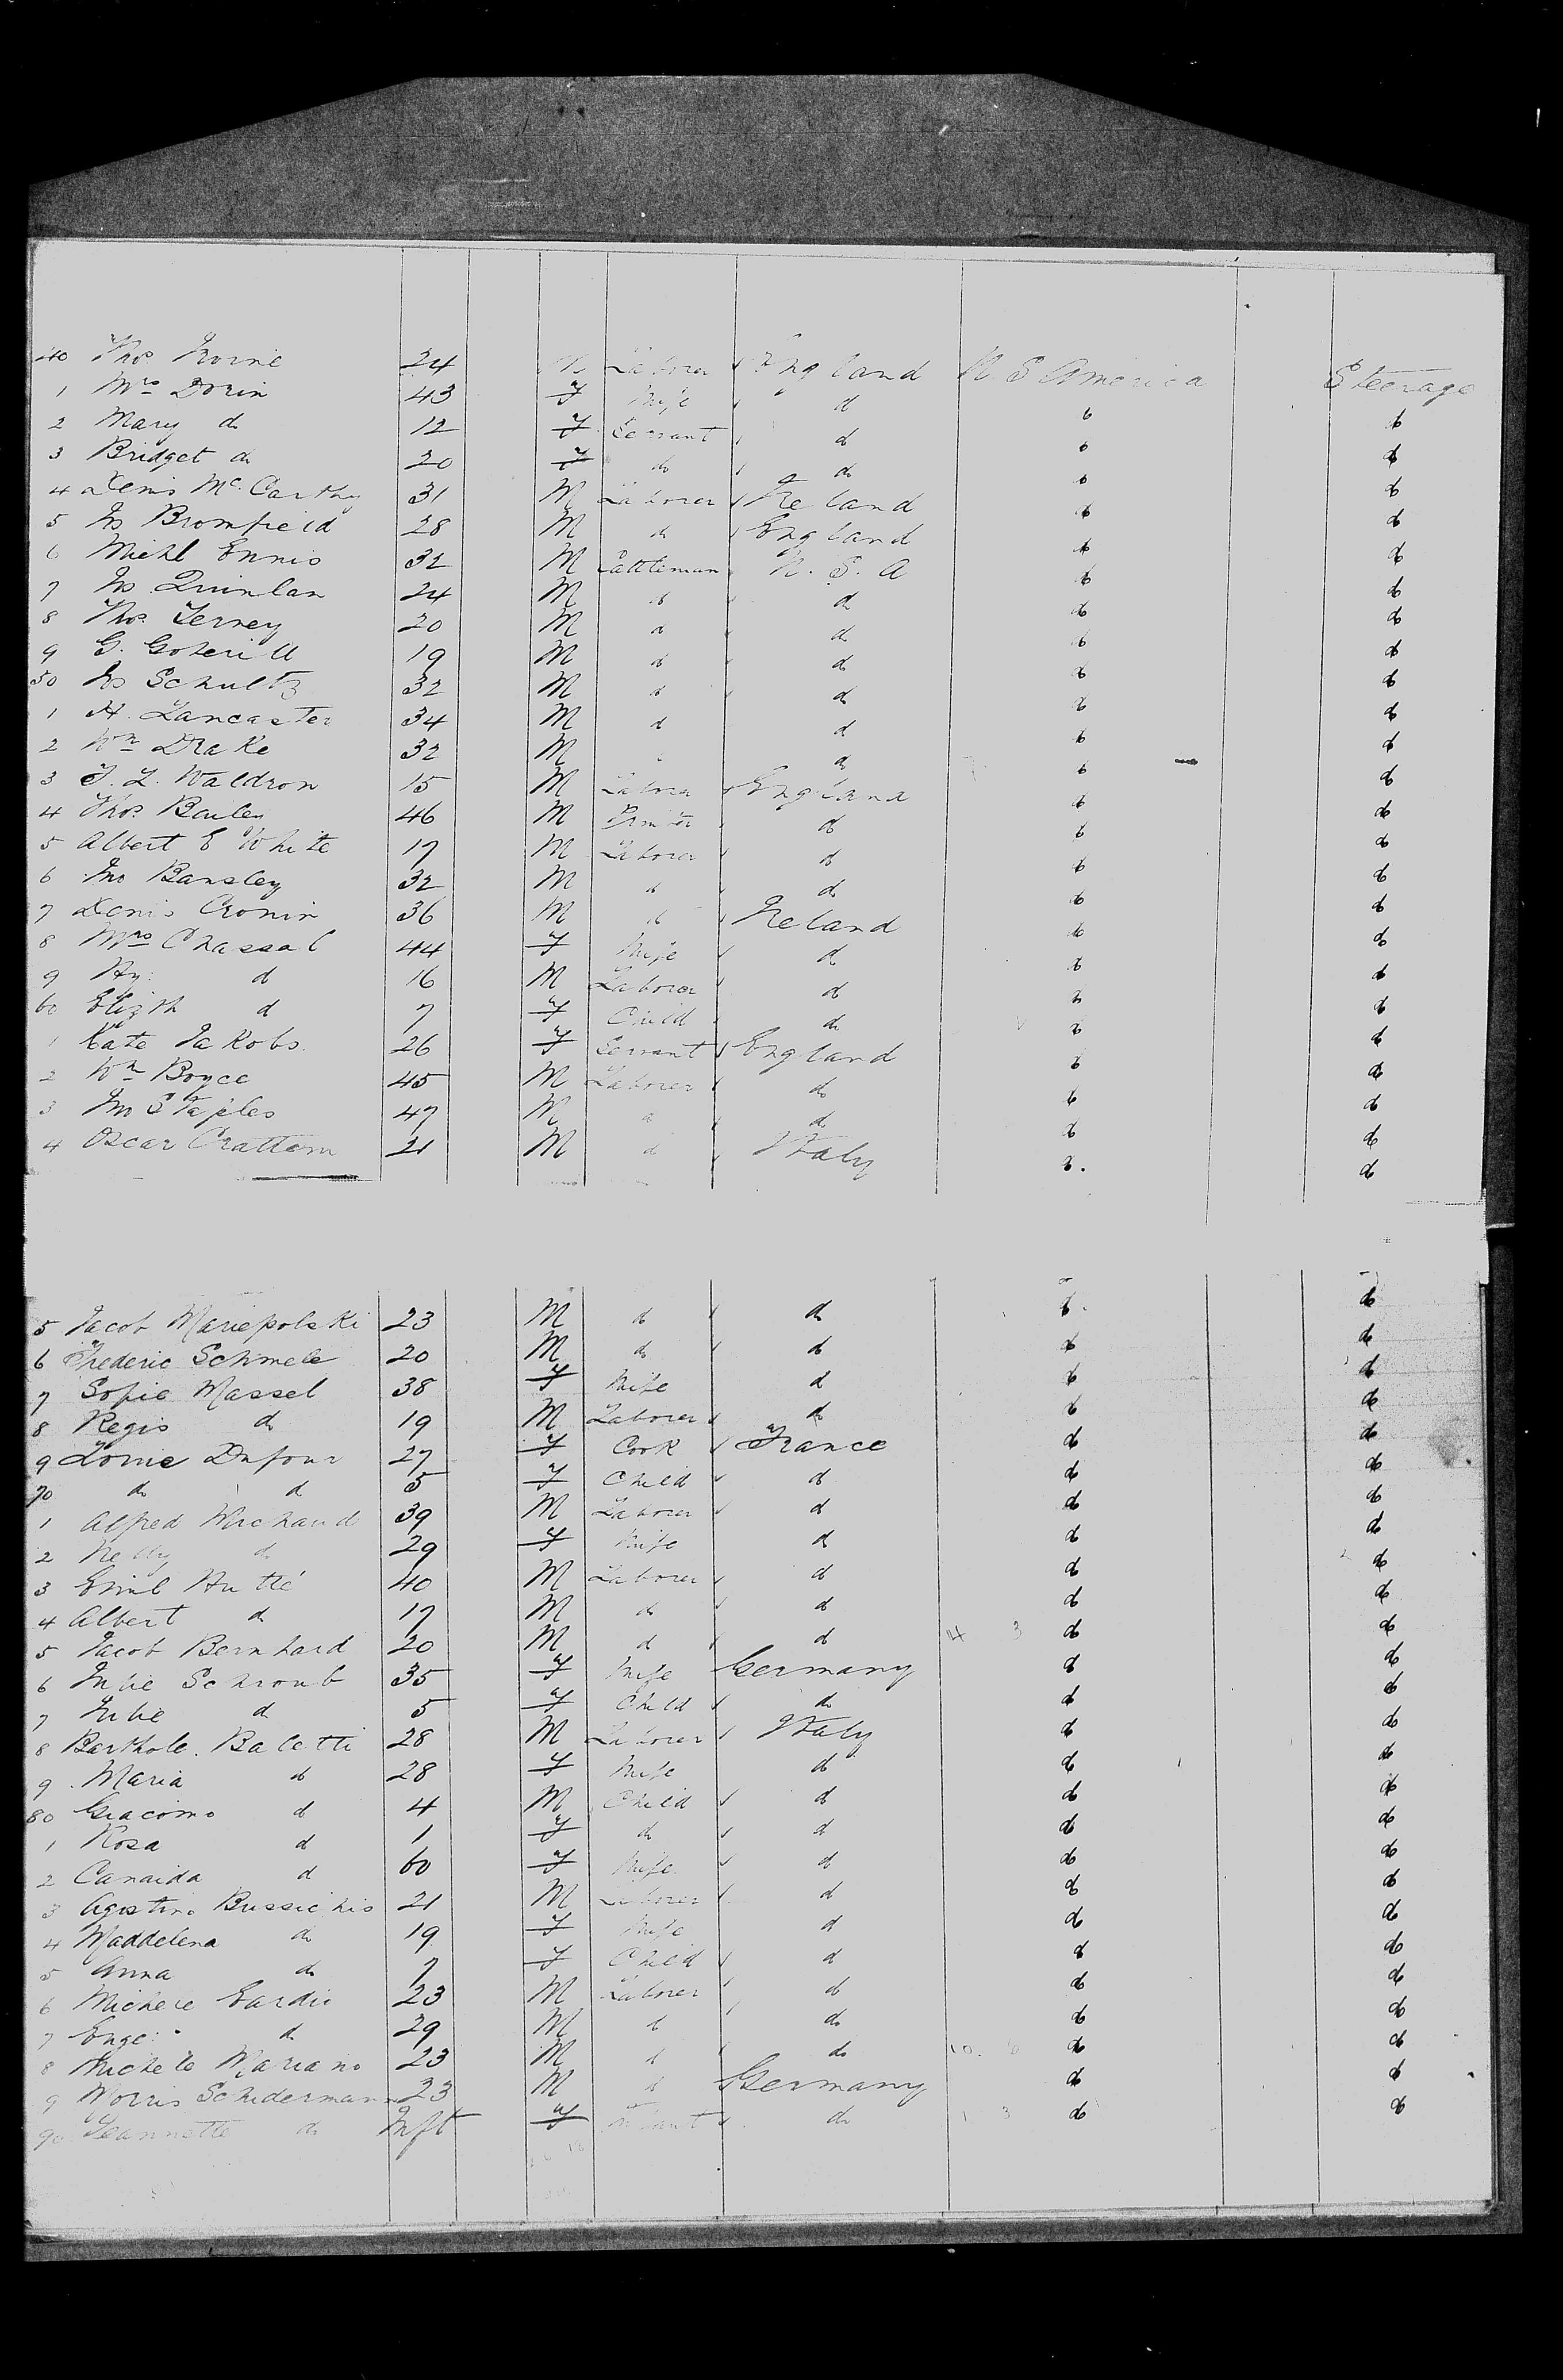 40 Thos Irvine 24 M Laborer England U S America Steerage
1 Mrs Dorin 43 F Wife d d d
2 Mary do 12 F Servant d d d
3 Bridget do 20 F do do d d
4 Denis Mc Carthy 31 M Laborer Ireland d d
5 Jno Bromfield 28 M d England d d
6 Michl Ennis 32 M Cattleman U. S. A d d
7 Jno Quinlan 24 M d d d d
8 Thos Terney 20 M d d d d
9 G. 19 M d d d d
50 Jno Schultz 32 M d d d d
1 H. Lancaster 34 M d d d d
2 Wm Drake 32 M d d d
3 T. L. Waldron 15 M Laborer England d d
4 Thos Bailey 46 M Printer d d d
5 Albert E White 17 M Laborer d d d
6 Jno Bansley 32 M d d d d
7 Denis Cronin 36 M d Ireland d d
8 Mrs Chassal 44 F Wife d d d
9 Hy: d 16 M Laborer d d d
60 Elizth d 7 F Child do d d
1 Kate Jakobs 26 F Servant England d d
2 Wm Boyce 45 M Laborer do d d
3 Jno Staples 47 M d d d d
4 Oscar Crattem 21 M d Italy d d
5 Jacob Mariepolski 23 M d do d d
6 Frederic Schmele 20 M do d d d
7 Sofie Massel 38 F Wife d d d
8 Regis do 19 M Laborer do d d
9 Louie Dufour 27 F Cook France d d
70 do d 5 F Child d d d
1 Alfred Michaud 39 M Laborer d d d
2 Nelly d 29 F Wife d d d
3 Emil Hutlé 40 M Laborer d d d
4 Albert d 17 M do d d d
5 Jacob Bernhard 20 M d d d d
6 Julie Schroub 35 F Wife Germany d d
7 Julie d 5 F Child do d d
8 Barthole. Baletti 28 M Laborer Italy d d
9 Maria d 28 F Wife d d d
80 Giacomo d 4 M Child d d d
1 Rosa d 1 F do d d d
2 Canaida d 60 F Wife d d d
3 Agostino 21 M Laborer d d d
4 Maddelena do 19 F Wife d d d
5 Anna do 7 F Child d d d
6 Michele Gardie 23 M Laborer d d d
7 d 29 M d do d d
8 Michele Mariano 23 M d do d d
9 Morris Schidermann 23 M d Germany d d
90 Jeannette do Inft F Infant do d d